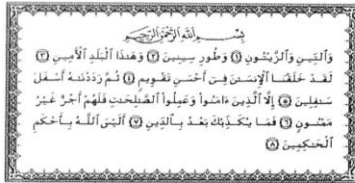 بِسْمِ اللَّهِ الرَّحْمَٰنِ الرَّحِيمِ
وَالتِّينِ وَالزَّيْتُونِ ۝١ وَطُورِ سِينِينَ ۝٢ وَهَٰذَا الْبَلَدِ الْأَمِينِ ۝٣
لَقَدْ خَلَقْنَا الْإِنسَٰنَ فِىٓ أَحْسَنِ تَقْوِيمٍ ۝٤ ثُمَّ رَدَدْنَٰهُ أَسْفَلَ
سَٰفِلِينَ ۝٥ إِلَّا الَّذِينَ ءَامَنُوا۟ وَعَمِلُوا۟ الصَّٰلِحَٰتِ فَلَهُمْ أَجْرٌ غَيْرُ
مَمْنُونٍ ۝٦ فَمَا يُكَذِّبُكَ بَعْدُ بِالدِّينِ ۝٧ أَلَيْسَ اللَّهُ بِأَحْكَمِ
الْحَٰكِمِينَ ۝٨